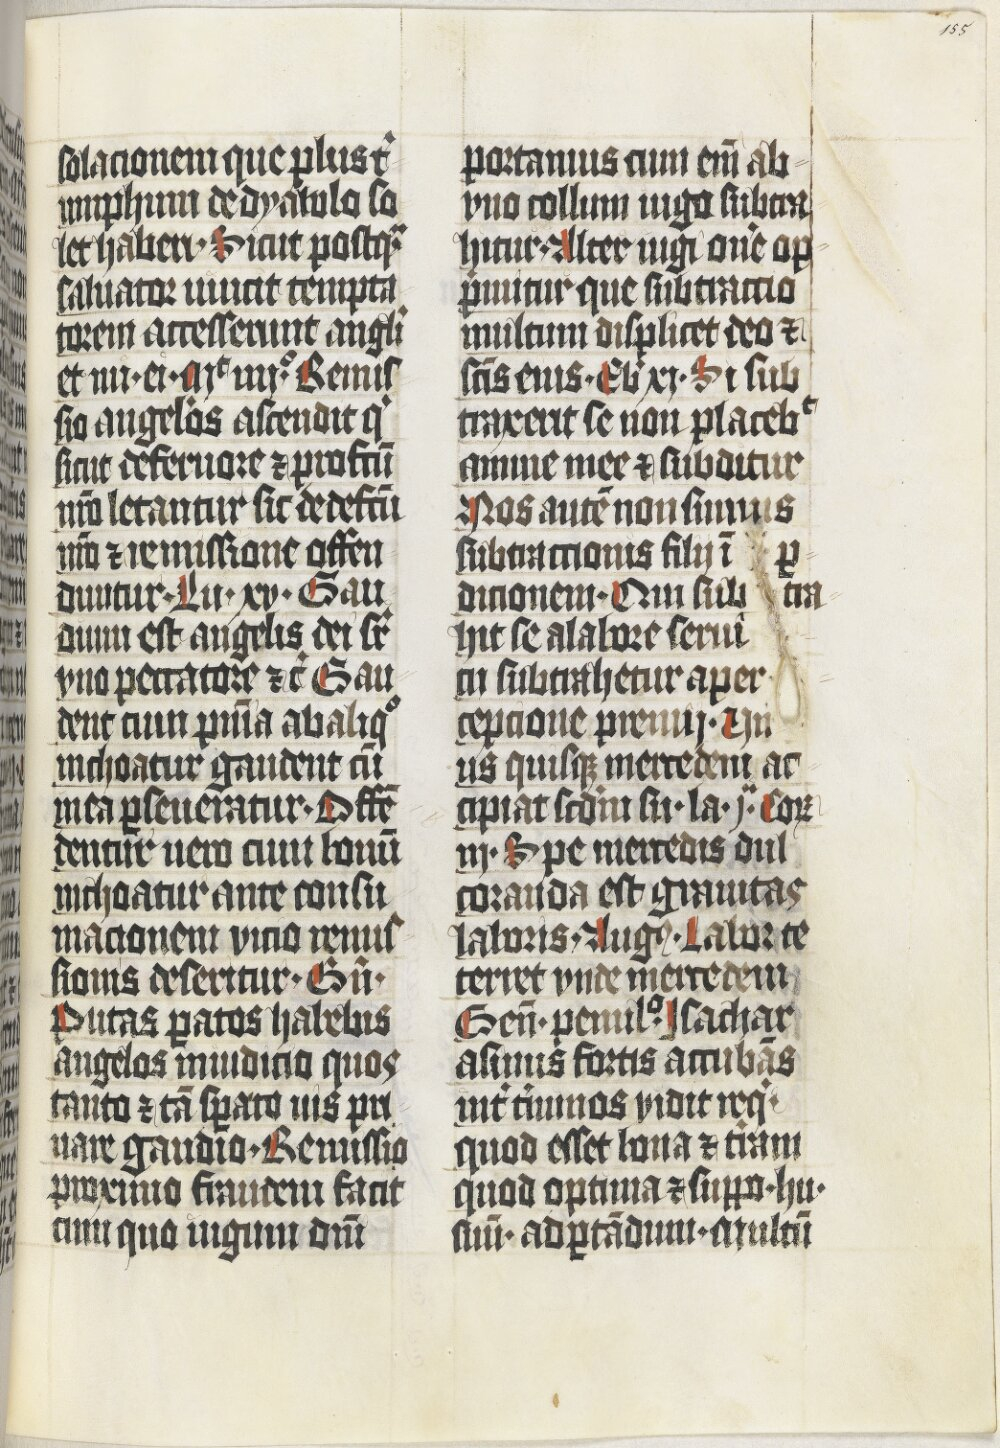 155
solacionem que plus tͥ
umphum de dyabolo so
let haberi· Sicut postqᷓ
saluator uincit tempta
torem accesserunt angli
et mi·ei· Mͭ iiijͦ Remis
sio angelos ascendit qͥ
sicut de feruore ⁊ profcū
nr̄o letantur sic de defcū
nr̄o ⁊ remissione offen
duntur· Lu· xv· Gau
dium est angelis dei sr̄
vno peccatore ⁊ c̄ Gau
dent cum pnīa ab aliqͦ
inchoatur gaudent cū
in ea ꝑseueratur· Offē
dentur uero cum bonū
inchoatur ante consu
macionem vicio remis
sionis deseritur· Gn̄·
Putas ꝑatos habebis
angelos in iudicio quos
tanto ⁊ tā sꝑato uis pri
uare gaudio· Remissio
proximo fraudem facit
cum quo iugum dn̄i
portamus cum em̄ ab
vno collum iugo subtra
hitur· Alter iugi on̄e op
p̄mitur que subtractio
multum displicet deo ⁊
scīs eius· Eb̄ xi· Si sub
traxerit se non placebͭ
anime mee ⁊ subditur
Nos autē non sumus
subtractionis filij ī ꝑ
dicionem· Qui sub tra
hit se a labore serui
tu subtrahetur a per
cepcione premij· Vn
us quisqꝫ mercedem ac
cipiat scd̄m su· la· jᷓ· Cor
iij· Spe mercedis dul
coranda est grauitas
laboris· Aug9· Labor te
terret vide mercedem
Gen̄· penulͦ· Isachar
asinus fortis accubās
int̄ t̄minos vidit reqͥ
quod esset bona ⁊ tram
quod optima ⁊ suppo·hu·
suū· ad ꝑtādum· Multū